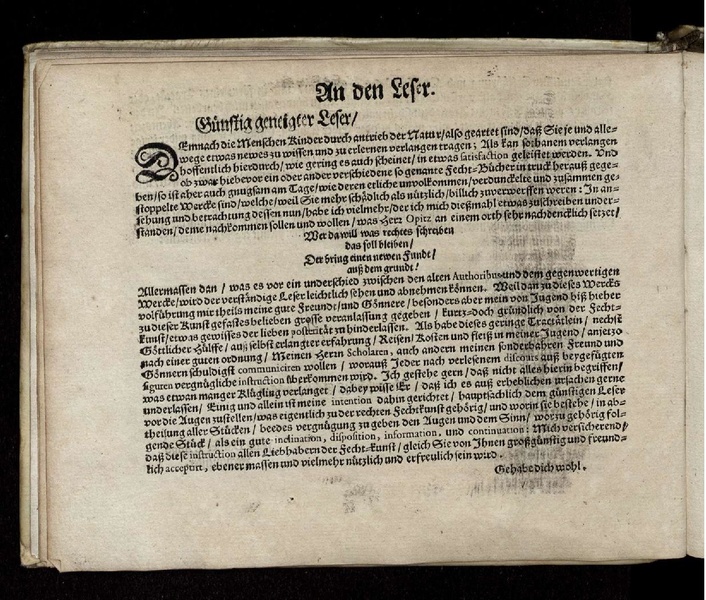 An den Leser.
Günstig geneigter Leser/
DEmnach die Menschen Kinder durch antrieb der Natur/also geartet sind/daß Sie je und alle-
wege etwas newes zu wissen und zu erlernen verlangen tragen; Als kan sothanem verlangen
hoffentlich hierdurch/ wie gering es auch scheinet/ in etwas satisfaction geleistet werden. Und
ob zwar hiebevor ein oder ander verschiedene so genante Fecht-Bücher in truck herauß gege-
ben/so ist aber auch gnugsam am Tage/wie deren etliche unvolkommen/verdunckelte und zusammen ge-
stoppelte Wercke sind/welche/weil Sie mehr schädlich als nützlich/billich zuverwerffen weren: In an-
sehung und betrachtung dessen nun/habe ich vielmehr/der ich mich dießmahl etwas zuschreiben under-
standen/deme nachkommen sollen und wollen/was Herr Opitz an einem orth sehr nachdencklich setzet/
Wer da will was rechtes schreiben
das soll bleiben/
Der bring einen newen Fundt/
auß dem grundt!
Allermassen dan / was es vor ein underschied zwischen den alten Authoribus und dem gegenwertigen
Wercke/wird der verständige Leser leichtlich sehen und abnehmen können. Weil dan zu dieses Wercks
volführung mir theils meine gute Freundt/und Gönnere/besonders aber mein von Jugend biß hieher
zu dieser Kunst gefastes belieben grosse veranlassung gegeben / kurtz-doch gründlich von der Fecht-
kunst/etwas gewisses der lieben posterität zu hinderlassen. Als habe dieses geringe Tractätlein/ nechst
Göttlicher Hülffe/ auß selbst erlangter erfahrung/ Reisen/ Kosten und fleiß in meiner Jugend/ anjetzo
nach einer guten ordnung/ Meinen Herrn Scholaren, auch andern meinen sonderbahren Freund und
Gönnern schuldigst communiciren wollen / worauß Jeder nach verlesenem discours auß beygefügten
figuren vergnügliche instruction überkommen wird. Ich gestehe gern/ daß nicht alles hierin begriffen/
was etwan manger Klügling verlanget / dabey wisse Er / daß ich es auß erheblichen ursachen gerne
underlassen/ Einig und allein ist meine intention dahin gerichtet / hauptsächlich dem günstigen Leser
vor die Augen zustellen/was eigentlich zu der rechten Fechtkunst gehörig/und worin sie bestehe/ in ab-
theilung aller Stücken/ beedes vergnügung zu geben den Augen und dem Sinn/ worzu gehörig fol-
gende Stück/ als ein gute inclination, disposition, information, und continuation: Mich versicherend/
daß diese instruction allen Liebhabern der Fecht-kunst/gleich Sie von Ihnen großgünstig und freund-
lich acceptirt, ebener massen und vielmehr nützlich und erfreulich sein wird.
Gehabe dich wohl.